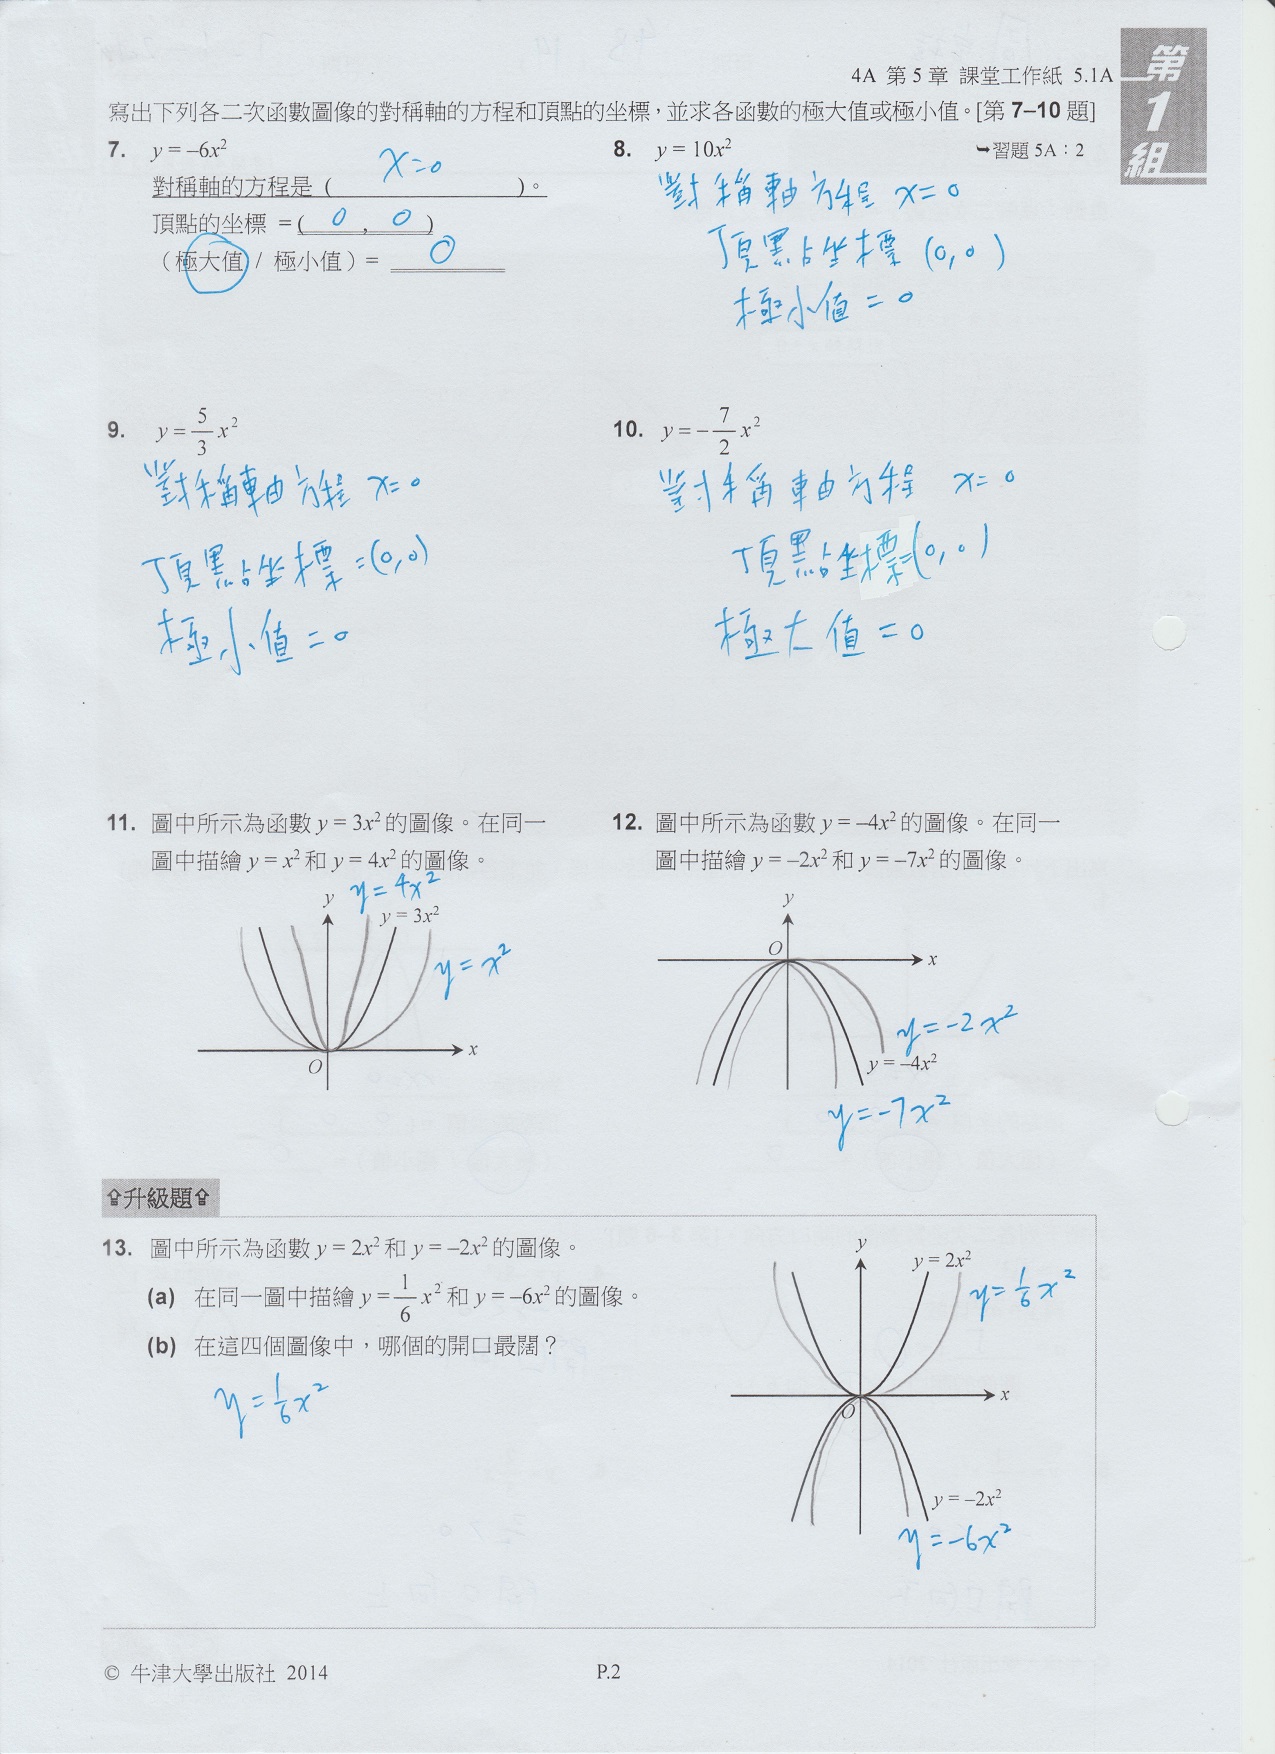 第1組
4A 第 5 章 課堂工作紙 5.1A
寫出下列各二次函數圖像的對稱軸的方程和頂點的坐標，並求各函數的極大值或極小值。[第 7–10 題]
7. y = –6x²
對稱軸的方程是 ( x=0 )。
頂點的坐標 = ( 0 , 0 )
（極大值 / 極小值）= 0
8. y = 10x²
➥習題 5A：2
對稱軸方程 x=0
頂點坐標 (0,0)
極小值 = 0
9. y = 5/3 x²
對稱軸方程 x=0
頂點坐標 =(0,0)
極小值 = 0
10. y = – 7/2 x²
對稱軸方程 x=0
頂點坐標=(0,0)
極大值 = 0
11. 圖中所示為函數 y = 3x² 的圖像。在同一
圖中描繪 y = x² 和 y = 4x² 的圖像。
y = 4x²
y
y = 3x²
y = x²
x
O
12. 圖中所示為函數 y = –4x² 的圖像。在同一
圖中描繪 y = –2x² 和 y = –7x² 的圖像。
y
O
x
y = -2x²
y = –4x²
y = -7x²
⇧升級題⇧
13. 圖中所示為函數 y = 2x² 和 y = –2x² 的圖像。
(a) 在同一圖中描繪 y = 1/6 x² 和 y = –6x² 的圖像。
(b) 在這四個圖像中，哪個的開口最闊？
y = 1/6 x²
y
y = 2x²
y = 1/6 x²
x
O
y = –2x²
y = -6x²
© 牛津大學出版社 2014
P.2